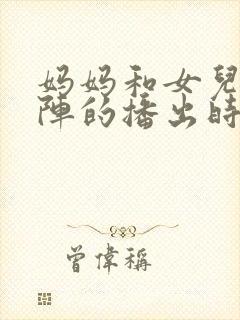 妈妈和女兒
陣的播出時
曾偉稱